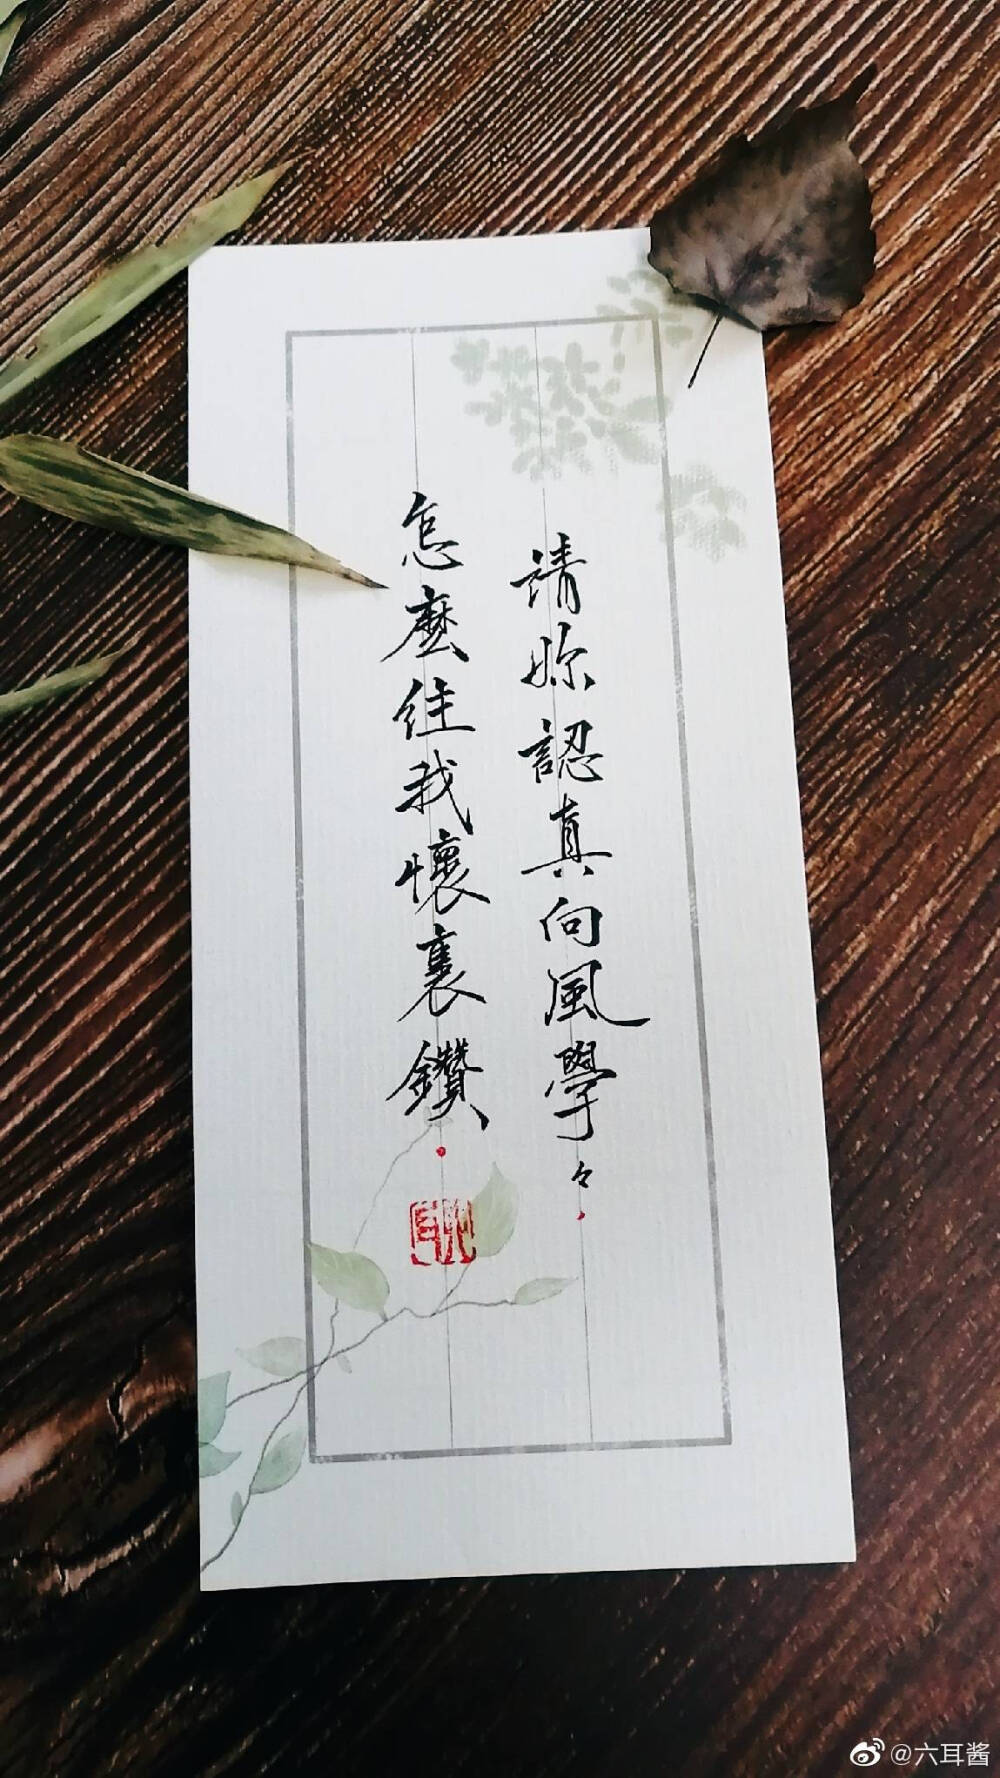 請妳認真向風學々
怎麼往我懷裏鑽
六耳
@六耳酱